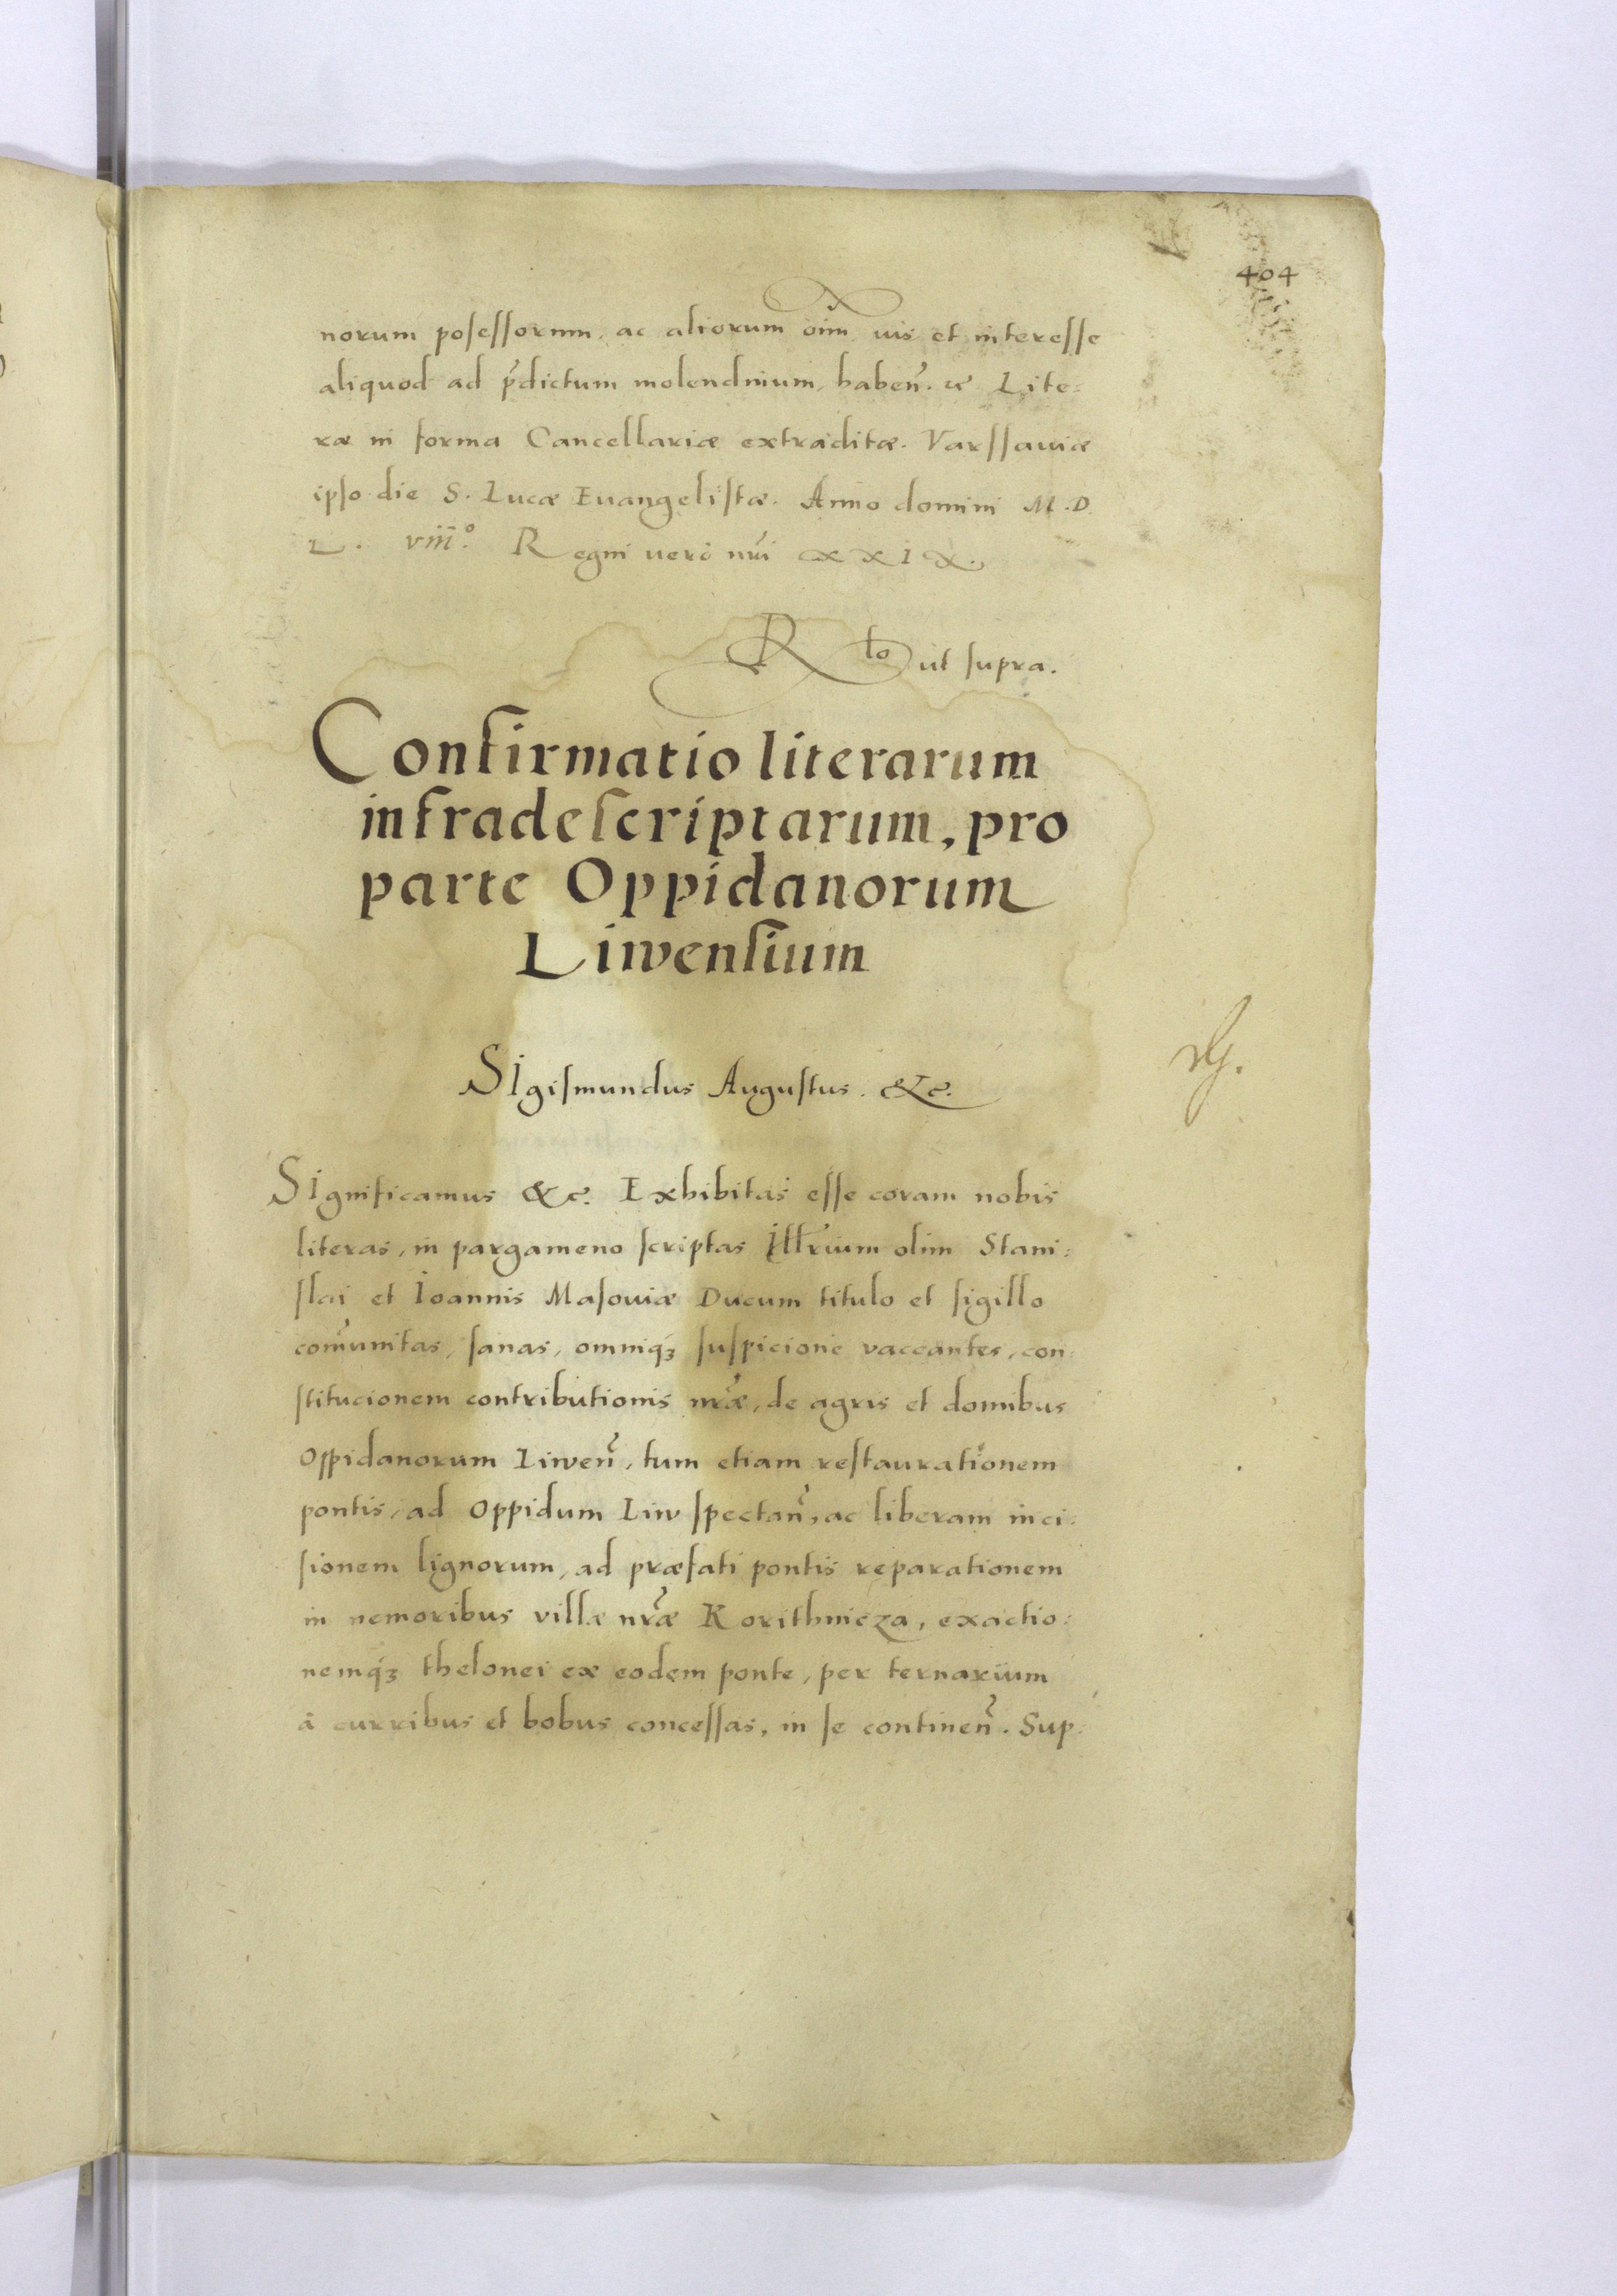 404
norum posessorum, ac aliorum oim̃ ius et interesse
aliquod ad p̃dictum molendinum, haben̄. &c Lite:
ræ in forma Cancellariæ extraditæ. Varssauiæ
ipso die S. Lucæ Euangelistæ. Anno domini M.D.
L. viii.º Regni uero nr̃i XXIX.
Rto ut supra.
Confirmatio literarum
infradescriptarum, pro
parte Oppidanorum
Liwensium
SIgismundus Augustus. &c.
SIgnificamus &c. Exhibitas esse coram nobis
literas, in pargameno scriptas Illr̃ium olim Stani:
slai et Ioannis Masouiæ Ducum titulo et sigillo
com̃unitas, sanas, omniqꝫ suspicione vaccantes, con:
stitucionem contributionis nr̃æ, de agris et domibus
Oppidanorum Liwen̄, tum etiam restaurationem
pontis, ad Oppidum Liw spectan̄, ac liberam inci:
sionem lignorum, ad præfati pontis reparationem
in nemoribus villæ nr̃æ Korithnicza, exactio:
nemqꝫ thelonei ex eodem ponte, per ternarium
à curribus et bobus concessas, in se continen̄. Sup: